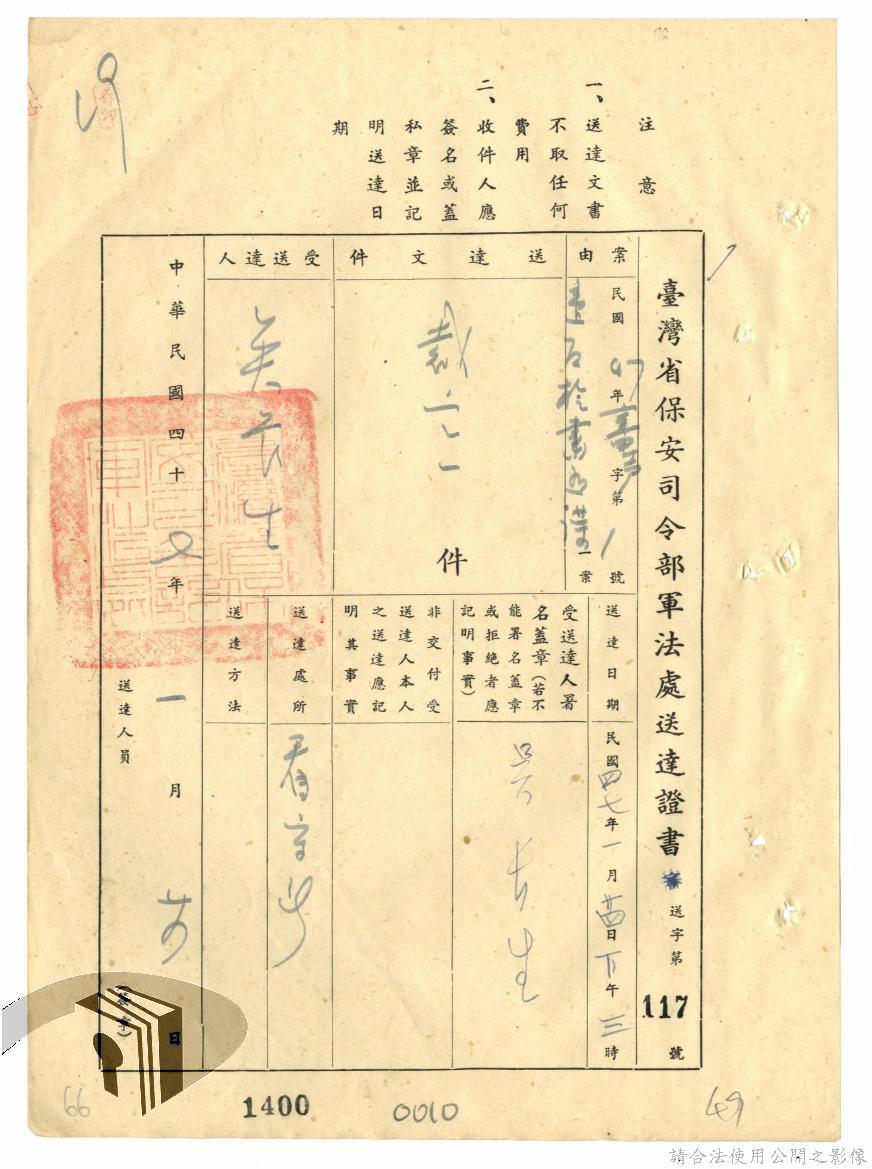 注意
一、送達文書
不取任何
費用
二、收件人應
簽名或蓋
私章並記
明送達日
期
臺灣省保安司令部軍法處送達證書
送字第
117
號
案由
民國47年 字第1號
一案
送達文件
裁定一
件
受送達人
吳長生
送達日期
民國四七年一月廿四日下午三時
受送達人署
名蓋章(若不
能署名蓋章
或拒絕者應
記明事實)
吳長生
非交付受
送達人本人
之送達應記
明其事實
送達處所
看守所
送達方法
中華民國四十 年一月 日
送達人員
(簽章)
66
1400
0010
49
請合法使用公開之影像